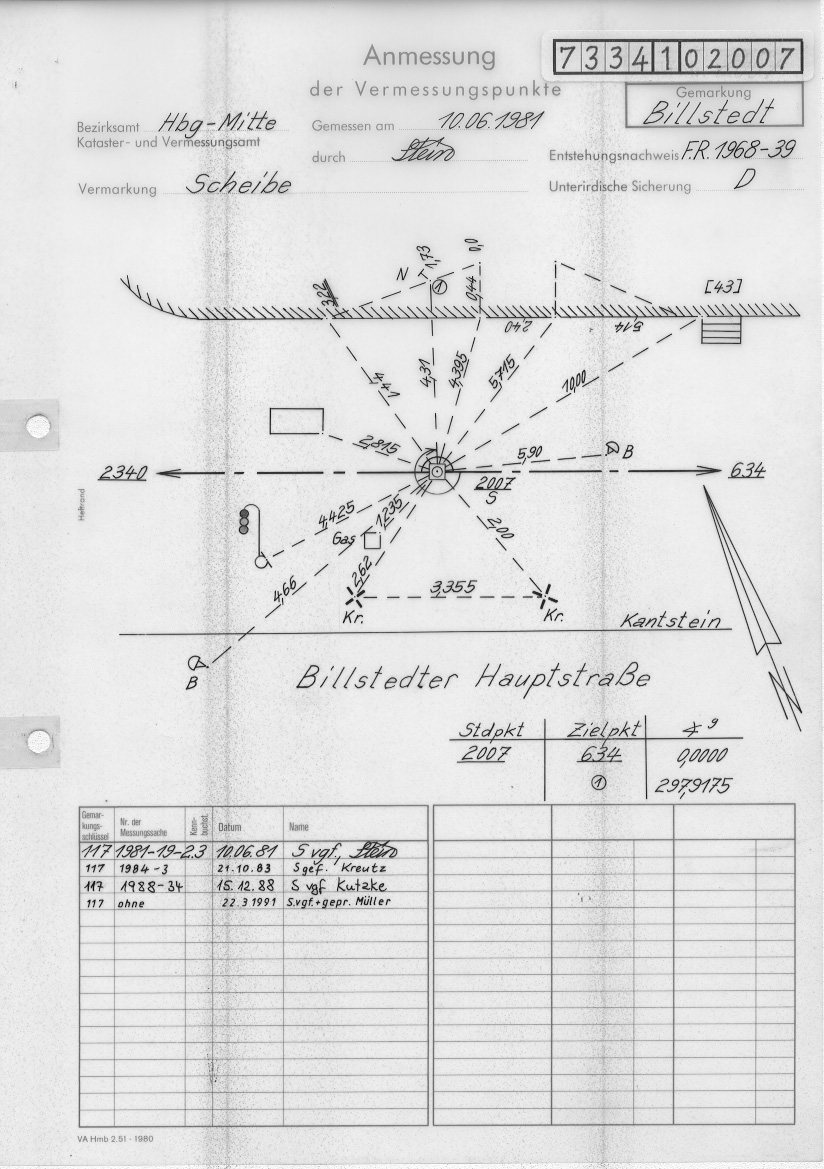 Anmessung
der Vermessungspunkte
73341 02007
Gemarkung
Billstedt
Bezirksamt Hbg-Mitte
Kataster- und Vermessungsamt
Gemessen am 10.06.1981
durch Stein
Entstehungsnachweis F.R. 1968-39
Vermarkung Scheibe
Unterirdische Sicherung D
N
1,73
0,0
3,22
1
0,44
2,40
5,14
[43]
4,41
4,31
4,395
5,715
10,00
2,815
5,90
B
2340
634
2007
S
Heftrand
4,425
1,235
Gas
2,00
4,66
2,62
3,355
Kr.
Kr.
Kantstein
B
Billstedter Hauptstraße
Stdpkt Zielpkt ∡ g
2007 634 0,0000
1 297,9175
Gemar-kungs-schlüssel Nr. der Messungssache Kenn-buchst. Datum Name
117 1981-19-2.3 10.06.81 S vgf., Stein
117 1984-3 21.10.83 S gef. Kreutz
117 1988-34 15.12.88 S vgf Kutzke
117 ohne 22.3 1991 S.vgf.+gepr. Müller
VA Hmb 2.51 - 1980